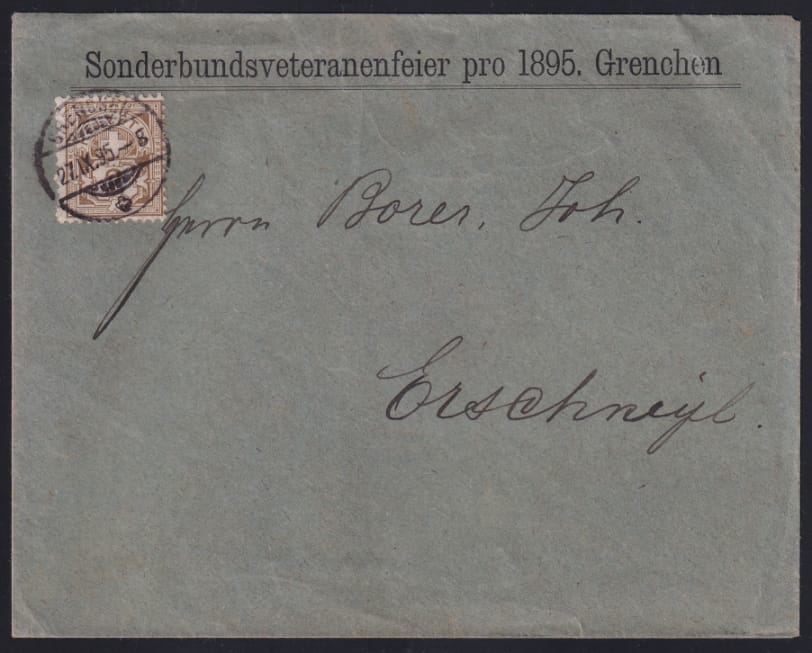 Sonderbundsveteranenfeier pro 1895. Grenchen
27.IX.95.–
Herrn Borer, Joh.
Erschwyl.